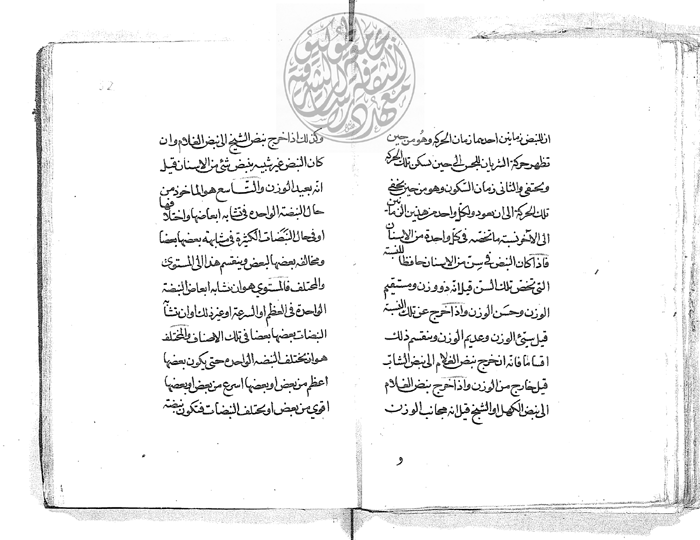 ان للنبض زمانين احدهما زمان الحركة وهو من حين
تظهر حركة الشريان للحس الى حين تسكن تلك الحركة
ويختفي والثاني زمان السكون وهو من حين يخفي
تلك الحركة الى ان يعود ولكل واحد من هذين الزمانين
الى الآخر نسبة مما تختصه في كل واحدة من الاسنان
فاذا كان النبض في سن من الاسنان حافظا للنسبة
التي تخص تلك السن قيل انه ذو وزن ومستقيم
الوزن وحسن الوزن واذا خرج عن تلك النسبة
قيل سيئ الوزن وعديم الوزن وينقسم ذلك
اقساما فانه ان خرج نبض الغلام الى نبض الشاب
قيل خارج من الوزن واذا خرج نبض الغلام
الى نبض الكهل او الشيخ قيل انه مجانب الوزن
و
وكذلك اذا خرج نبض الشيخ الى نبض الغلام وان
كان النبض غير شبيه بنبض شئ من الاسنان قيل
انه بعيد الوزن والتاسع هو الماخوذ من
حال النبضة الواحدة في تشابه ابعاضها واختلافها
او في حال النبضات الكثيرة في مشابهة بعضها بعضا
ومخالفة بعضها لبعض وينقسم هذا الى المستوي
والمختلف فالمستوي هو ان تشابه ابعاض النبضة
الواحدة في العظم او السرعة او غير ذلك وان تشابه
النبضات بعضها بعضا في تلك الاصناف والمختلف
هو ان يختلف النبضة الواحدة حتى يكون بعضها
اعظم من بعض او بعضها اسرع من بعض او بعضها
اقوي من بعض او يختلف النبضات فتكون نبضة